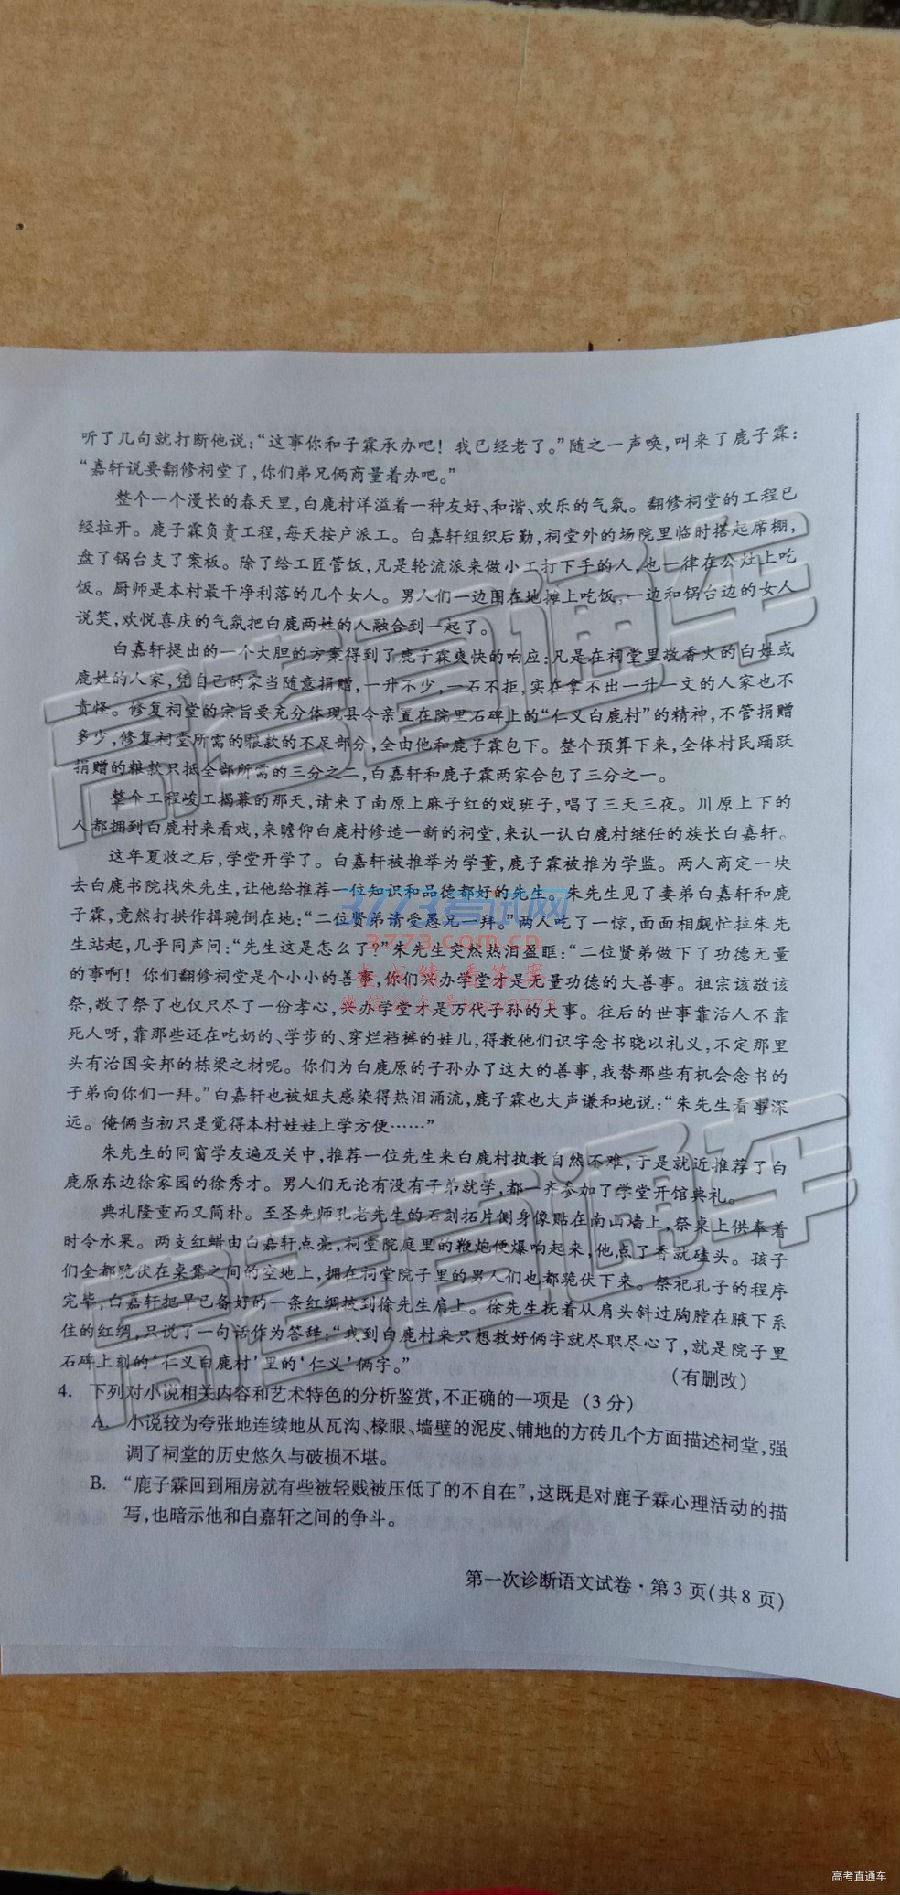 听了几句就打断他说：“这事你和子霖承办吧！我已经老了。”随之一声唤，叫来了鹿子霖：
“嘉轩说要翻修祠堂了，你们弟兄俩商量着办吧。”
整个一个漫长的春天里，白鹿村洋溢着一种友好、和谐、欢乐的气氛。翻修祠堂的工程已
经拉开。鹿子霖负责工程，每天按户派工。白嘉轩组织后勤，祠堂外的场院里临时搭起席棚，
盘了锅台支了案板。除了给工匠管饭，凡是轮流派来做小工打下手的人，也一律在公灶上吃
饭。厨师是本村最干净利落的几个女人。男人们一边围在地摊上吃饭，一边和锅台边的女人
说笑，欢悦喜庆的气氛把白鹿两姓的人融合到一起了。
白嘉轩提出的一个大胆的方案得到了鹿子霖爽快的响应：凡是在祠堂里敬香火的白姓或
鹿姓的人家，凭自己的家当随意捐赠，一升不少，一石不拒，实在拿不出一升一文的人家也不
责怪。修复祠堂的宗旨要充分体现县令亲置在院里石碑上的“仁义白鹿村”的精神，不管捐赠
多少，修复祠堂所需的粮款的不足部分，全由他和鹿子霖包下。整个预算下来，全体村民踊跃
捐赠的粮款只抵全部所需的三分之二，白嘉轩和鹿子霖两家合包了三分之一。
整个工程竣工揭幕的那天，请来了南原上麻子红的戏班子，唱了三天三夜。川原上下的
人都拥到白鹿村来看戏，来瞻仰白鹿村修造一新的祠堂，来认一认白鹿村继任的族长白嘉轩。
这年夏收之后，学堂开学了。白嘉轩被推举为学董，鹿子霖被推为学监。两人商定一块
去白鹿书院找朱先生，让他给推荐一位知识和品德都好的先生。朱先生见了妻弟白嘉轩和鹿
子霖，竟然打拱作揖跪倒在地：“二位贤弟请受愚兄一拜。”两人吃了一惊，面面相觑忙拉朱先
生站起，几乎同声问：“先生这是怎么了？”朱先生突然热泪盈眶：“二位贤弟做下了功德无量
的事啊！你们翻修祠堂是个小小的善事，你们兴办学堂才是无量功德的大善事。祖宗该敬该
祭，敬了祭了也仅只尽了一份孝心，兴办学堂才是万代子孙的大事。往后的世事靠活人不靠
死人呀，靠那些还在吃奶的、学步的、穿烂裆裤的娃儿，得教他们识字念书晓以礼义，不定那里
头有治国安邦的栋梁之材呢。你们为白鹿原的子孙办了这大的善事，我替那些有机会念书的
子弟向你们一拜。”白嘉轩也被姐夫感染得热泪涌流，鹿子霖也大声谦和地说：“朱先生看事深
远。俺俩当初只是觉得本村娃娃上学方便……”
朱先生的同窗学友遍及关中，推荐一位先生来白鹿村执教自然不难，于是就近推荐了白
鹿原东边徐家园的徐秀才。男人们无论有没有子弟就学，都一齐参加了学堂开馆典礼。
典礼隆重而又简朴。至圣先师孔老先生的石刻拓片侧身像贴在南山墙上，祭桌上供奉着
时令水果。两支红蜡由白嘉轩点亮，祠堂院庭里的鞭炮便爆响起来，他点了香就磕头。孩子
们全都跪伏在桌凳之间的空地上，拥在祠堂院子里的男人们也都跪伏下来。祭祀孔子的程序
完毕，白嘉轩把早已备好的一条红绸披到徐先生肩上。徐先生抚着从肩头斜过胸膛在腋下系
住的红绸，只说了一句话作为答辞：“我到白鹿村来只想教好俩字就尽职尽心了，就是院子里
石碑上刻的‘仁义白鹿村’里的‘仁义’俩字。”
（有删改）
4. 下列对小说相关内容和艺术特色的分析鉴赏，不正确的一项是（3分）
A. 小说较为夸张地连续地从瓦沟、椽眼、墙壁的泥皮、铺地的方砖几个方面描述祠堂，强
调了祠堂的历史悠久与破损不堪。
B. “鹿子霖回到厢房就有些被轻贱被压低了的不自在”，这既是对鹿子霖心理活动的描
写，也暗示他和白嘉轩之间的争斗。
第一次诊断语文试卷·第3页（共8页）
高考直通车
高考直通车
3773考试网
3773.com.cn
高考直通车